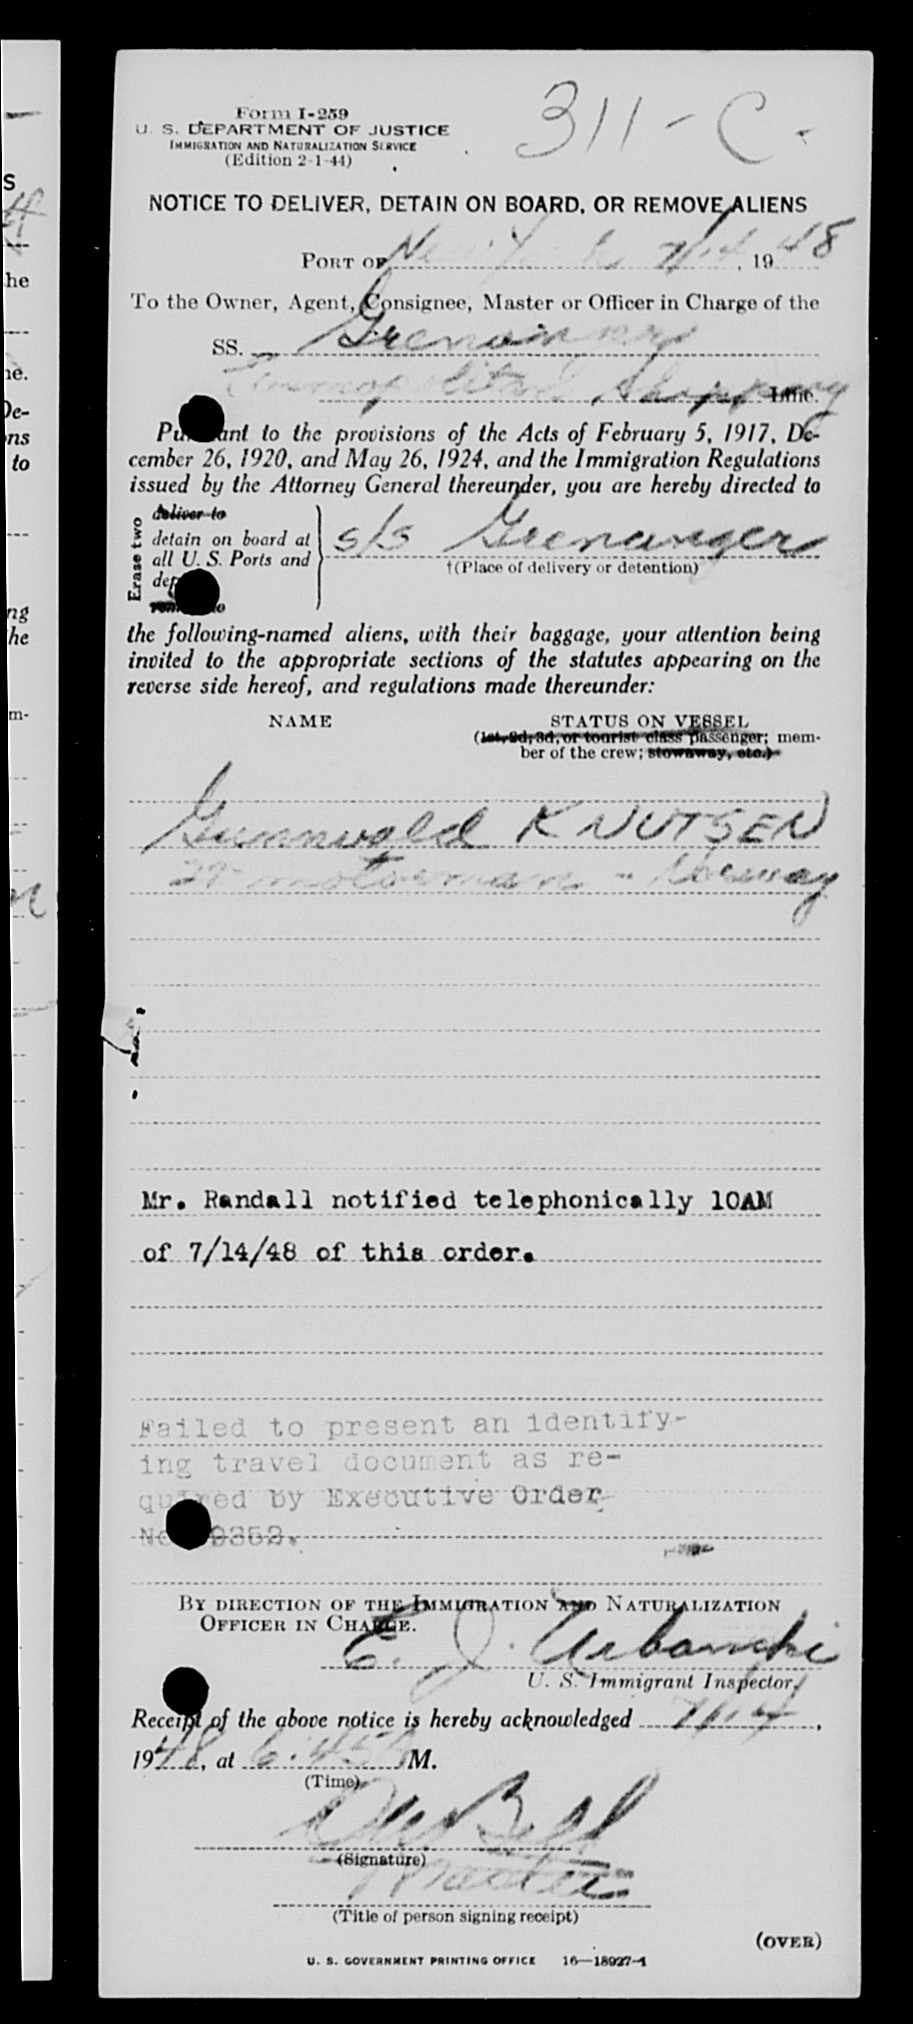 Form I-259
U. S. DEPARTMENT OF JUSTICE
IMMIGRATION AND NATURALIZATION SERVICE
(Edition 2-1-44)
311-C-
NOTICE TO DELIVER, DETAIN ON BOARD, OR REMOVE ALIENS
PORT OF New York 7/14, 1948
To the Owner, Agent, Consignee, Master or Officer in Charge of the
SS. Grenanger
Cosmopolitan Shipping Line.
Pursuant to the provisions of the Acts of February 5, 1917, De-
cember 26, 1920, and May 26, 1924, and the Immigration Regulations
issued by the Attorney General thereunder, you are hereby directed to
Erase two
deliver to
detain on board at
all U. S. Ports and
s/s Grenanger
†(Place of delivery or detention)
the following-named aliens, with their baggage, your attention being
invited to the appropriate sections of the statutes appearing on the
reverse side hereof, and regulations made thereunder:
NAME STATUS ON VESSEL
(1st, 2d, 3d, or tourist class passenger; mem-
ber of the crew; stowaway, etc.)
Gunnvald KNUTSEN
motorman - Norway
Mr. Randall notified telephonically 10AM
of 7/14/48 of this order.
Failed to present an identify-
ing travel document as re-
quired by Executive Order
No. 9352.
BY DIRECTION OF THE IMMIGRATION AND NATURALIZATION
OFFICER IN CHARGE.
E. J. Urbanski
U. S. Immigrant Inspector.
Receipt of the above notice is hereby acknowledged 7/14,
1948, at 6:45 P M.
(Time)
(Signature)
Master
(Title of person signing receipt)
(OVER)
U. S. GOVERNMENT PRINTING OFFICE 16—18927-1